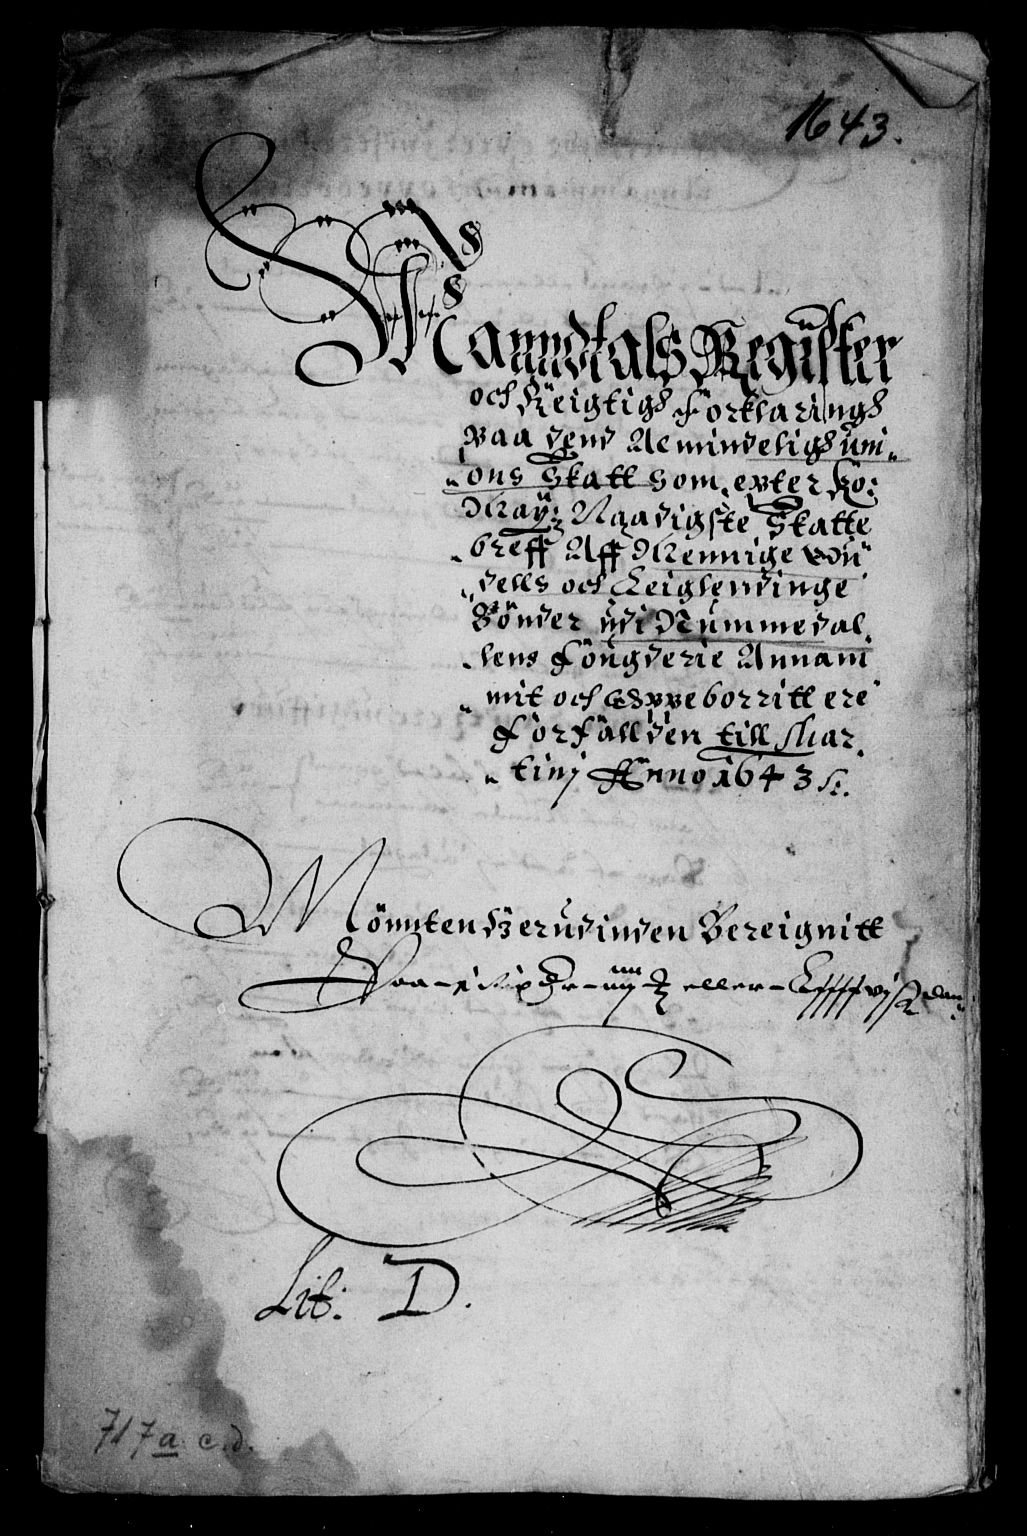 1643.
Manndtals Register
och Rigtigh Forklaringh
Paa dend Almindeligh uni„
„ons Skatt som epter Ko:
May: Naadigste Skatte
„breff Aff Mennige Ødi
„dells och Leiglendinge
Bönder udi Nummedal„
„lens Fougderie Annam
„mit och Oppeborritt ere
Forfallden till Mar„
„tinj Anno 1643
Mönnten herudinden Bereignitt
Paa
eller
Lit: D.
717 a c.d.